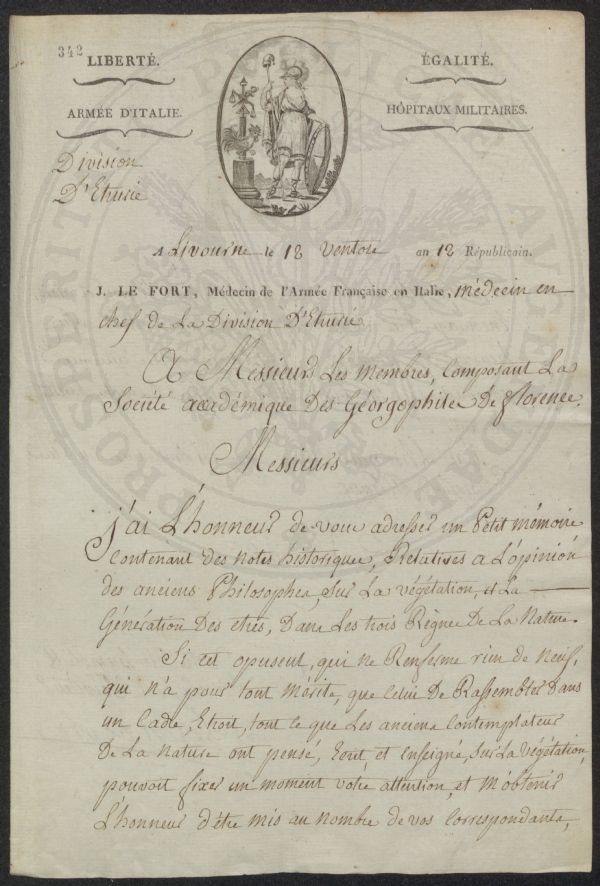 342
LIBERTÉ.
ÉGALITÉ.
ARMÉE D'ITALIE.
HÔPITAUX MILITAIRES.
Division
D'Etrurie
A Livourne le 18 Ventose an 12 Républicain.
J. LE FORT, Médecin de l'Armée Française en Italie, médecin en
chef de la Division D'Etrurie
A Messieurs Les membres, composant La
Société académique Des Géorgophiles de florence.
Messieurs
j'ai L'honneur de vous adresser un Petit mémoire
contenant des notes historiques, Relatives a L'opinion
des anciens Philosophes, sur La végétation, et La
Génération Des etres, Dans Les trois Règnes De La Nature.
Si cet opuscul, qui ne Renferme rien de neuf,
qui n'a pour tout Mérite, que celui De Rassembler dans
un Cadre, Etroit, tout ce que Les anciens Contemplateurs
De La Nature ont pensé, Ecrit, et Enseigné, sur La végétation,
pouvoit fixer un moment votre attention, et M'obtenir
L'honneur d'être mis au nombre de vos correspondants,
PROSPERITATI PUBLICAE